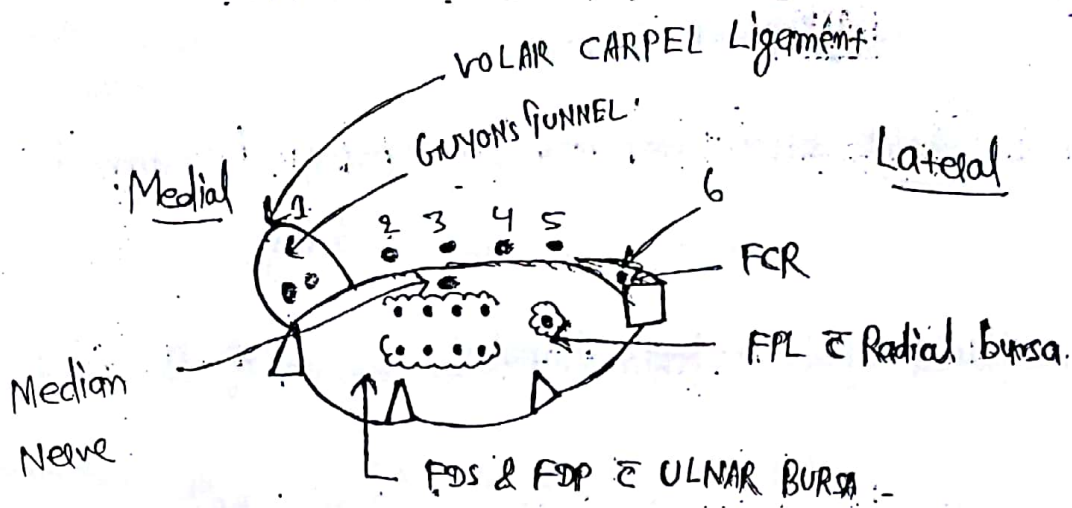 VOLAR CARPEL Ligement:
GUYON'S TUNNEL.
Medial
Lateral
1
2 3 4 5
6
FCR
FPL c̄ Radial bursa.
Median
Nerve
FDS & FDP c̄ ULNAR BURSA :-